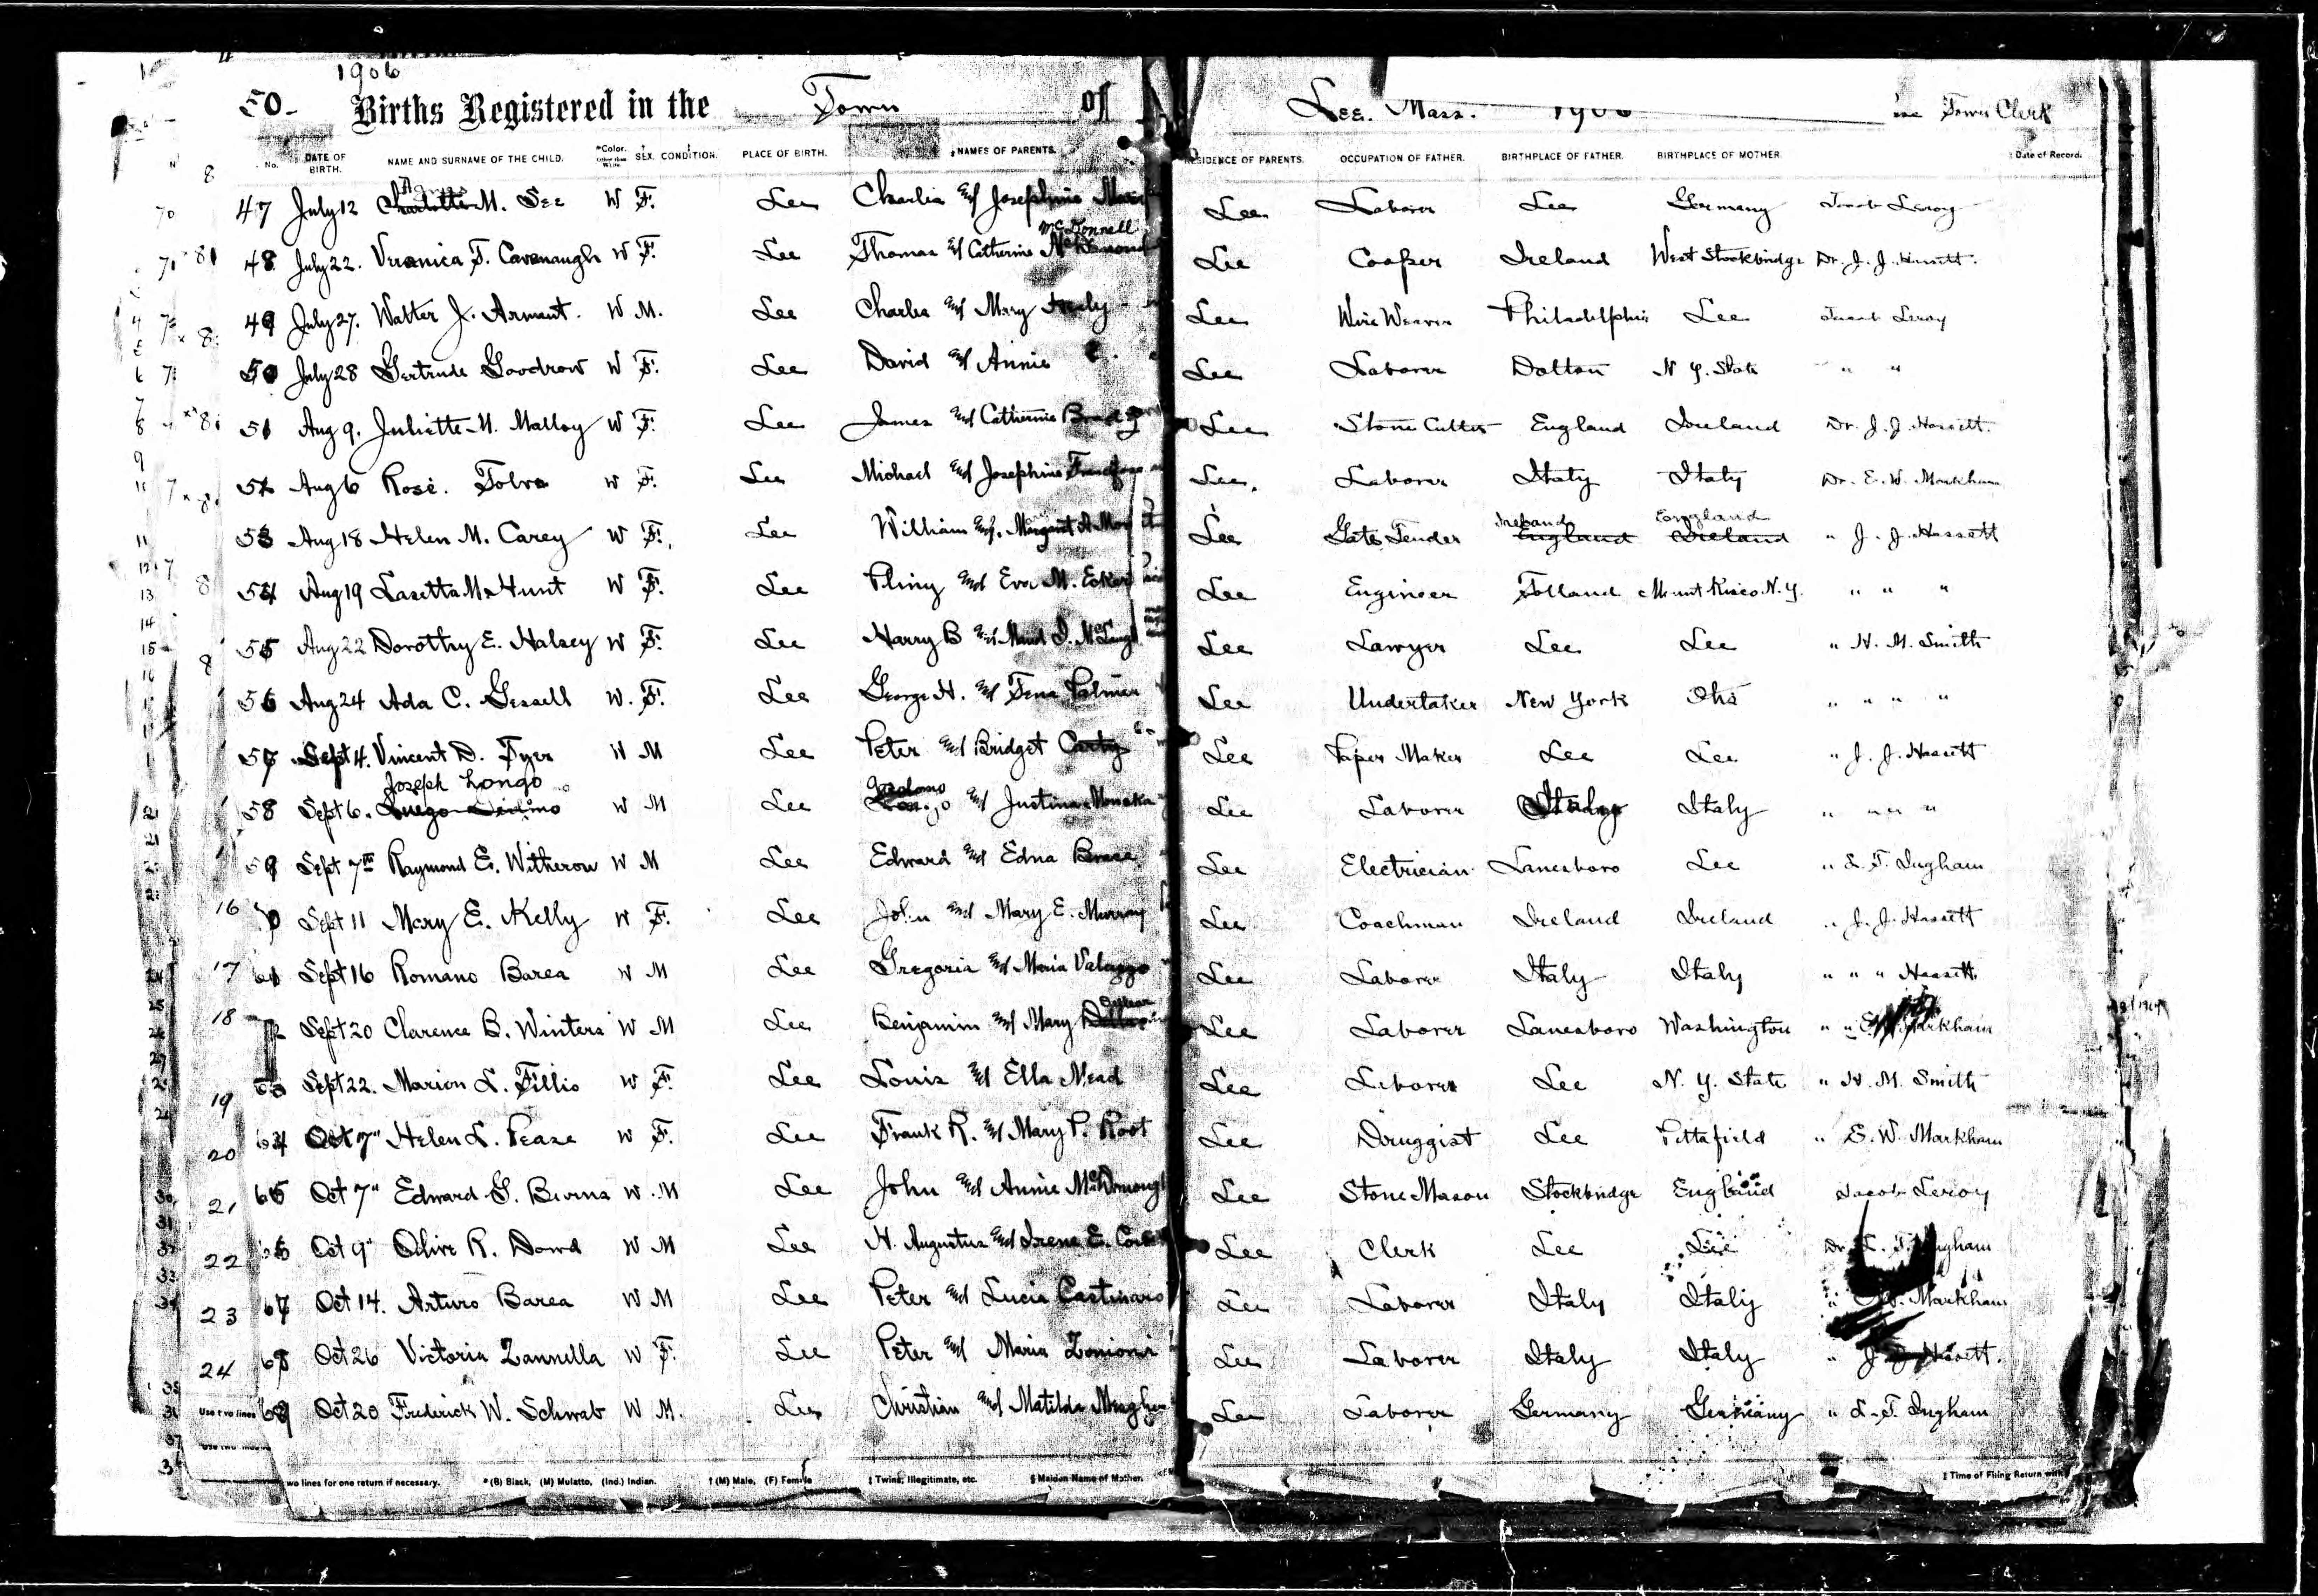 1906
50- Births Registered in the Town of Lee. Mass. 1906 Town Clerk
No. DATE OF BIRTH. NAME AND SURNAME OF THE CHILD. *Color. Other than White. SEX. CONDITION. PLACE OF BIRTH. NAMES OF PARENTS. RESIDENCE OF PARENTS. OCCUPATION OF FATHER. BIRTHPLACE OF FATHER. BIRTHPLACE OF MOTHER. Date of Record.
Agnes
47 July 12 Charlotte M. See W F. Lee Charlie and Josephine Lee Laborer Lee Germany Jacob Leroy
McDonnell
48 July 22. Veronica F. Cavanaugh W F. Lee Thomas and Catherine Lee Cooper Ireland West Stockbridge Dr. J. J. Hassett.
49 July 27. Walter J. Arment. W M. Lee Charles and Mary Healy Lee Wire Weaver Philadelphia Lee Jacob Leroy
50 July 28 Gertrude Goodrow W F. Lee David and Annie Lee Laborer Dalton N. Y. State " "
51 Aug 9. Juliette M. Malloy W F. Lee James and Catherine Lee Stone Cutter England Ireland Dr. J. J. Hassett.
52 Aug 6 Rose. Tolva W F. Lee Michael and Josephine Lee. Laborer Italy Italy Dr. E. W. Markham
Ireland England
53 Aug 18 Helen M. Carey W F. Lee William and Margaret A. Lee Gate Tender England Ireland " J. J. Hassett
54 Aug 19 Lasetta M. Hunt W F. Lee Pliny and Eva M. Lee Engineer Tolland Mount Kisco N. Y. " " "
55 Aug 22 Dorothy E. Halsey W F. Lee Harry B and Maud I. Lee Lawyer Lee Lee " H. M. Smith
56 Aug 24 Ada C. Gessell W. F. Lee George H. and Tena Palmer Lee Undertaker New York Ohio " " " "
57 Sept 4. Vincent D. Fyer W M Lee Peter and Bridget Carty Lee Paper Maker Lee Lee " J. J. Hassett
Joseph Longo
58 Sept 6. W M Lee and Justina Lee Laborer Italy Italy " " " "
59 Sept 7th Raymond E. Witherow W M Lee Edward and Edna Lee Electrician Lanesboro Lee " L. T. Ingham
16 Sept 11 Mary E. Kelly W F. Lee John and Mary E. Murray Lee Coachman Ireland Ireland " J. J. Hassett
17 61 Sept 16 Romano Barea W M Lee Gregoria and Maria Valazzo Lee Laborer Italy Italy " " " Hassett
18 Sept 20 Clarence B. Winters W M Lee Benjamin and Mary Lee Laborer Lanesboro Washington " " Markham
19 63 Sept 22. Marion L. Fillio W F. Lee Louis and Ella Mead Lee Laborer Lee N. Y. State " H. M. Smith
20 64 Oct 7" Helen L. Pease W F. Lee Frank R. and Mary P. Root Lee Druggist Lee Pittsfield " E. W. Markham
21 65 Oct 7" Edward G. Burns W. M Lee John and Annie Lee Stone Mason Stockbridge England Jacob Leroy
22 66 Oct 9" Olive R. Dowd W M Lee H. Augustus and Irene E. Lee Clerk Lee Lee Dr. L. T. Ingham
23 67 Oct 14. Arturo Barea W M Lee Peter and Lucia Castinaro Lee Laborer Italy Italy " W. Markham
24 68 Oct 26 Victoria Zannella W F. Lee Peter and Maria Zonioni Lee Laborer Italy Italy " J. J. Hassett.
69 Oct 20 Frederick W. Schwab W M. Lee Christian and Matilda Lee Laborer Germany Germany " L. T. Ingham
wo lines for one return if necessary. *(B) Black, (M) Mulatto, (Ind.) Indian. †(M) Male, (F) Female ‡Twins, Illegitimate, etc. §Maiden Name of Mother. Time of Filing Return with